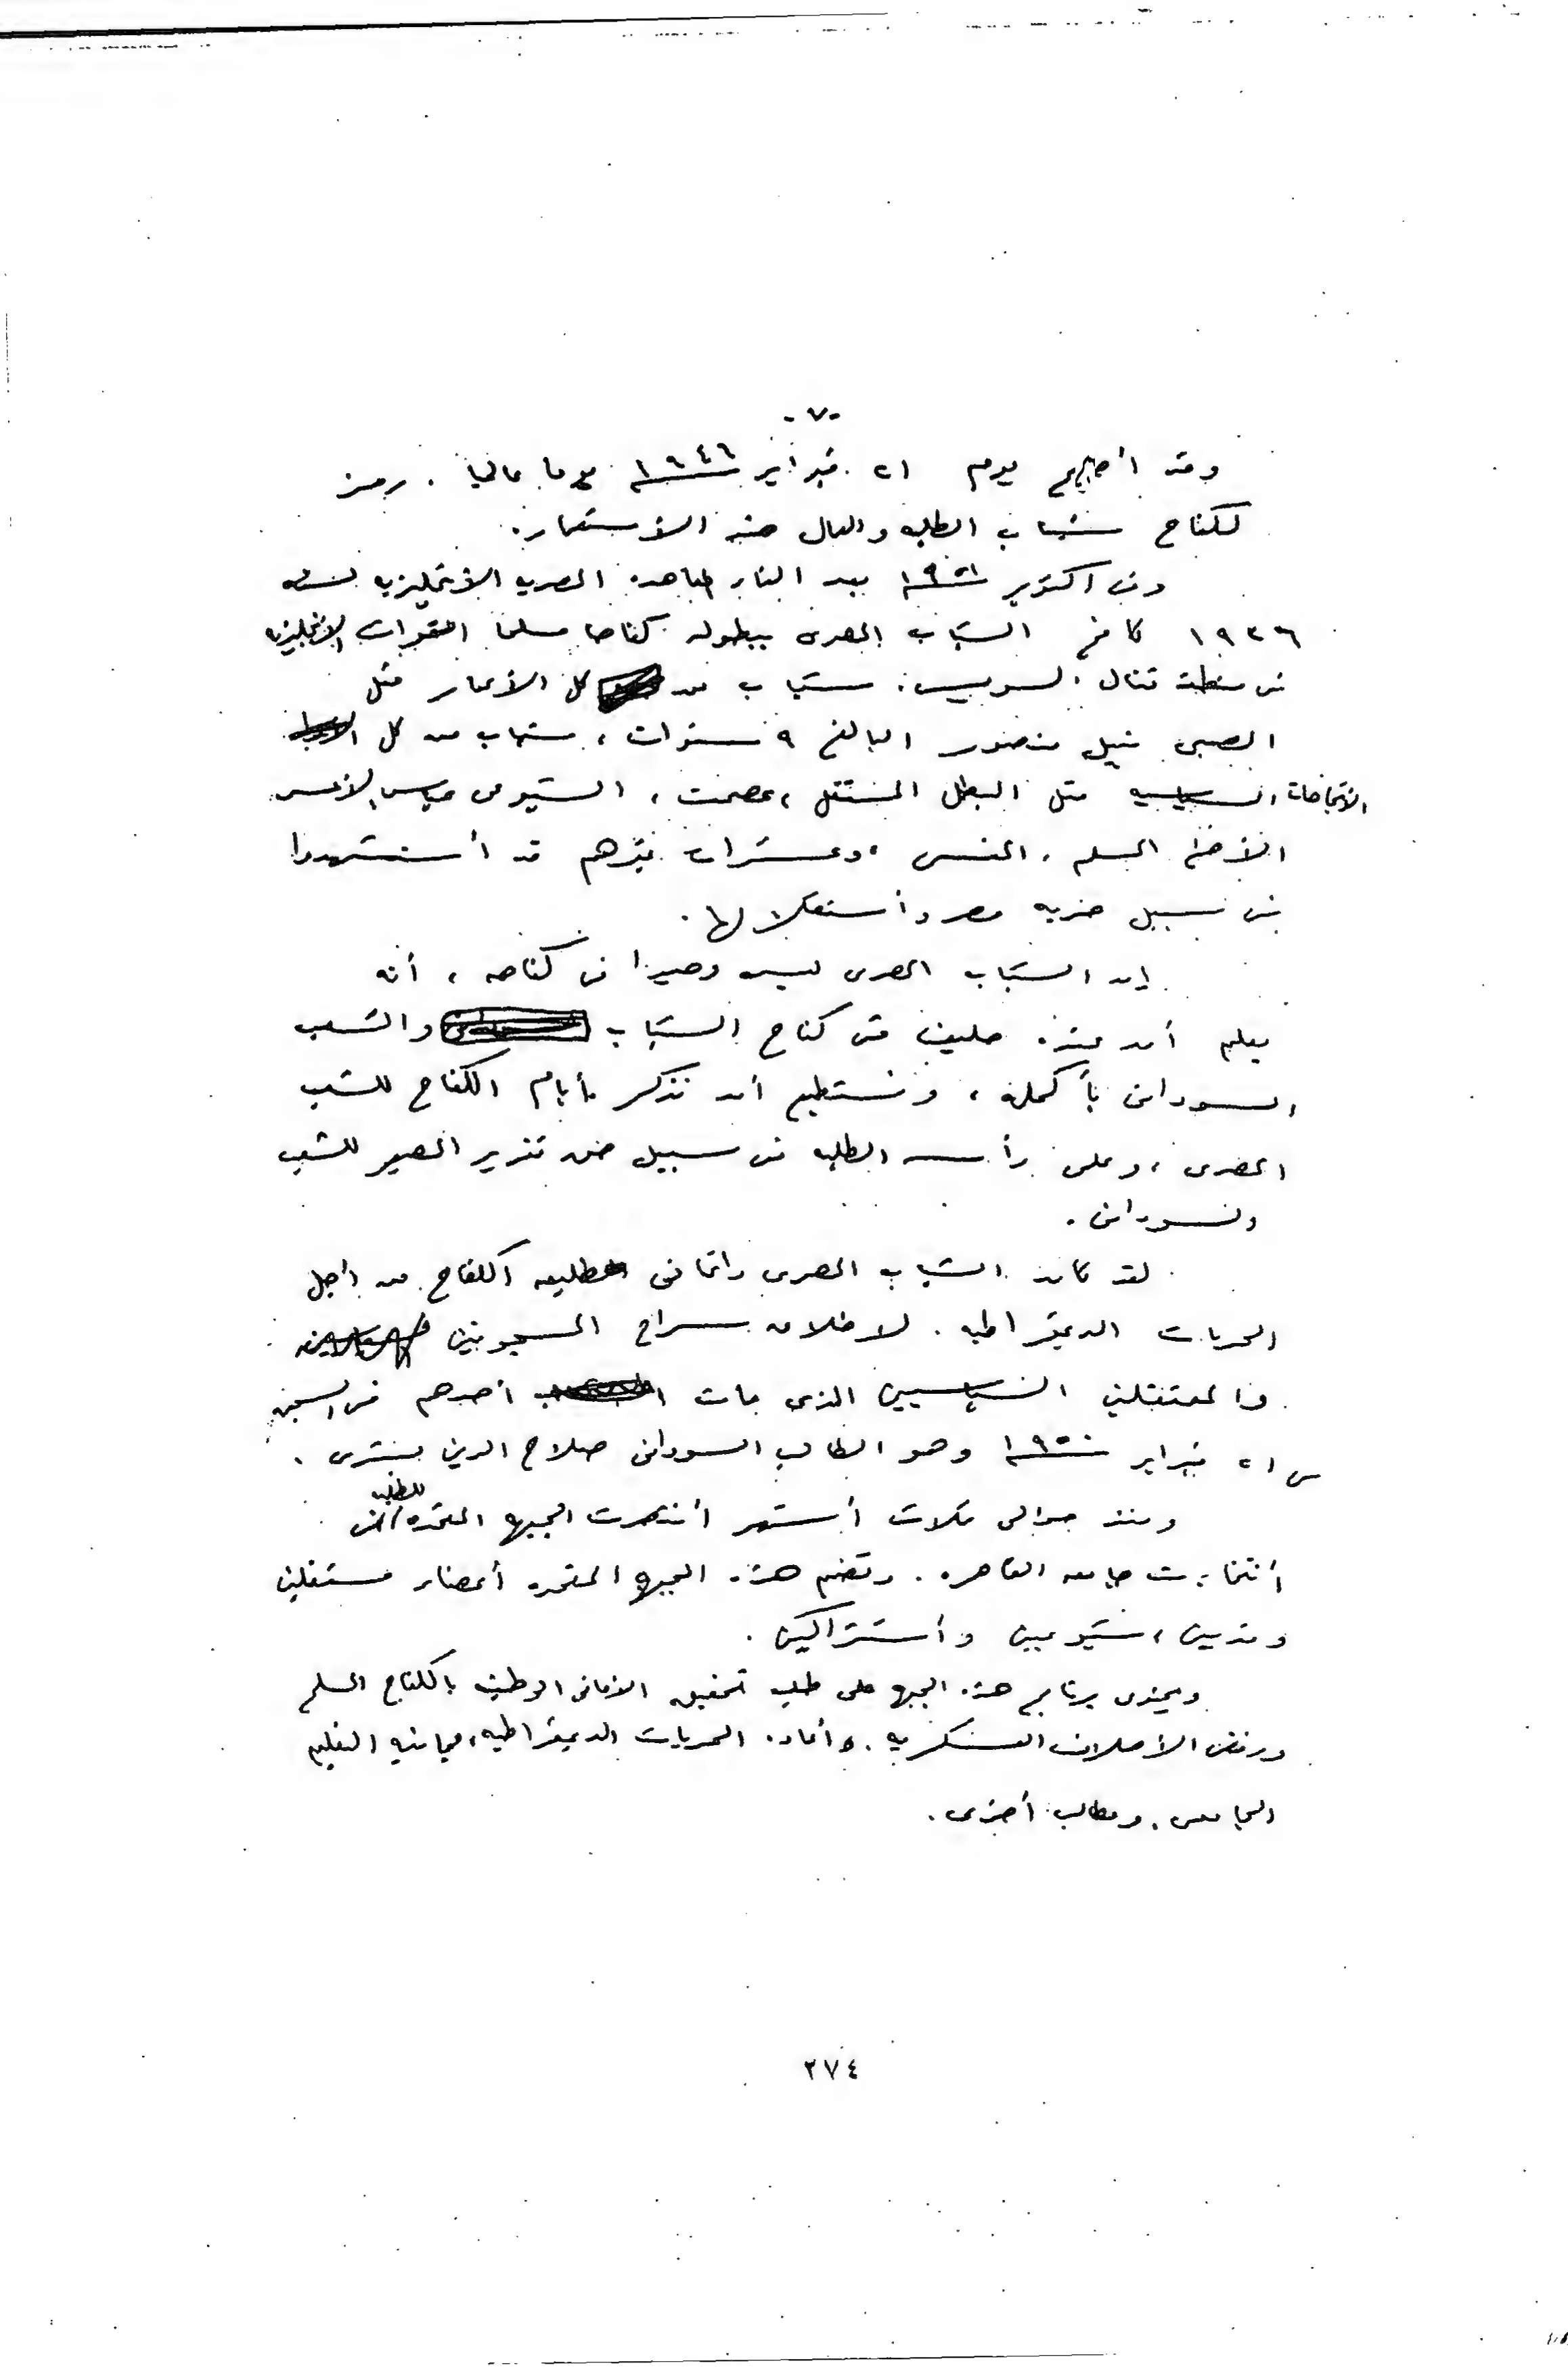 -٧-
وقد أصبح يوم ٢١ فبراير ١٩٤٦ يوما عالميا . رمز
لكفاح شباب الطلبه والعمال ضد الأستعمار .
وفى اكتوبر ١٩٥١ بعد الغاء المعاهده المصريه الأنجليزيه لسنه
١٩٣٦ كافح الشباب المصرى ببطوله كفاحا مسلحا القوات الانجليزيه
فى منطقة قنال السويس . شباب من كل الأعمار مثل
الصبى نبيل منصور البالغ ٩ سنوات ، شباب من كل
الأتجاهات السياسيه مثل البطل المستقل ، عصمت ، الشيوعى عباس الأعسر
الأخ المسلم . المنسى ، وعشرات غيرهم قد أستشهدوا
فى سبيل حريه مصر وأستقلالها .
إن الشباب المصرى ليس وحيدا فى كفاحه ، أنه
يعلم أن عنده حليف فى كفاح الشباب والشعب
السودانى بأكمله ، ونستطيع أن نتذكر أيام الكفاح للشعب
المصرى ، وعلى رأسه الطلبه فى سبيل حق تقرير المصير للشعب
السودانى .
لقد كان الشباب المصرى دائما فى طليعه الكفاح من اجل
الحريات الديمقراطيه . لاطلاق سراح المسجونين
والمعتقلين السياسيين الذى مات أحدهم فى السجن
فى ٢١ فبراير ١٩٥٠ وهو الطالب السودانى صلاح الدين بشرى .
ومنذ حوالى ثلاث أشهر أنتصرت الجبهه المتحده للطلبه فى
أنتخابات جامعه القاهره . وتضم هذه الجبهه المتحده أعضاء مستقلين
وفديين ، شيوعيين وأشتراكيين .
ويحتوى برنامج هذه الجبهه على طلب تحقيق الأمانى الوطنيه بالكفاح المسلح
ورفض الأحلاف العسكريه . وأعاده الحريات الديمقراطيه ، مجانيه التعليم
الجامعى . ومطالب أخرى .
٢٧٤